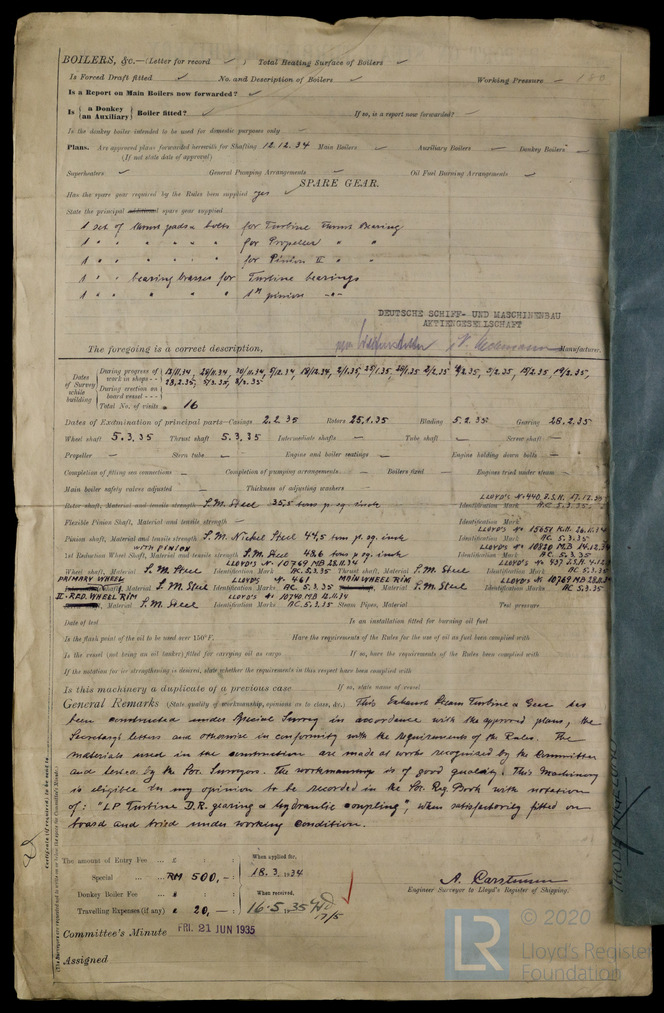 BOILERS, &c.—(Letter for record ✓ ) Total Heating Surface of Boilers ✓
Is Forced Draft fitted ✓ No. and Description of Boilers ✓ Working Pressure – 180
Is a Report on Main Boilers now forwarded? ✓
Is { a Donkey / an Auxiliary } Boiler fitted? ✓ If so, is a report now forwarded? ✓
Is the donkey boiler intended to be used for domestic purposes only —
Plans. Are approved plans forwarded herewith for Shafting 12.12.34 Main Boilers ✓ Auxiliary Boilers — Donkey Boilers —
(If not state date of approval)
Superheaters ✓ General Pumping Arrangements — Oil Fuel Burning Arrangements ✓
SPARE GEAR.
Has the spare gear required by the Rules been supplied yes ✓
State the principal additional spare gear supplied
1 set of thrust pads & bolts for Turbine thrust Bearing
1 " " " " " " for Propeller " "
1 " " " " " " for Pinion II " "
1 " " bearing brasses for Turbine bearings
1 " " " " " 1st pinion -"-
DEUTSCHE SCHIFF- UND MASCHINENBAU
AKTIENGESELLSCHAFT
The foregoing is a correct description, Manufacturer.
Dates of Survey while building
During progress of work in shops - -
During erection on board vessel - - -
Total No. of visits 16
Dates of Examination of principal parts—Casings 2.2.35 Rotors 25.1.35 Blading 5.2.35 Gearing 28.2.35
Wheel shaft 5.3.35 Thrust shaft 5.3.35 Intermediate shafts — Tube shaft — Screw shaft —
Propeller — Stern tube — Engine and boiler seatings — Engine holding down bolts —
Completion of fitting sea connections — Completion of pumping arrangements — Boilers fixed — Engines tried under steam —
Main boiler safety valves adjusted — Thickness of adjusting washers —
LLOYD'S No 440. J.S.H. 17.12.34
Rotor shaft, Material and tensile strength S.M. Steel 35,5 tons p. sq. inch Identification Mark AC. 5.3.35
Flexible Pinion Shaft, Material and tensile strength — Identification Mark
LLOYD'S No 15651 K.H. 26.11.34
Pinion shaft, Material and tensile strength S.M. Nickel Steel 44,5 tons p. sq. inch Identification Mark AC. 5.3.35
WITH PINION LLOYD'S No 10820 MB 14.12.34
1st Reduction Wheel Shaft, Material and tensile strength S.M. Steel 43.6 tons p. sq. inch Identification Mark AC. 5.3.35
LLOYD'S No 10769 MB 28.11.34 LLOYD'S No 437 J.S.H. 4.12.34
Wheel shaft, Material S.M. Steel Identification Mark AC. 5.3.35 Thrust shaft, Material S.M. Steel Identification Mark AC. 5.3.35
PRIMARY WHEEL LLOYD'S No 461 MAIN WHEEL RIM LLOYD'S No 10769 MB 28.11.34
Material S.M. Steel Identification Marks AC. 5.3.35 Material S.M. Steel Identification Mark AC. 5.3.35
II. RED. WHEEL RIM LLOYD'S No 10740 MB 12.11.34
Material S.M. Steel Identification Marks AC. 5.3.35 Steam Pipes, Material Test pressure
Date of test Is an installation fitted for burning oil fuel
Is the flash point of the oil to be used over 150°F. Have the requirements of the Rules for the use of oil as fuel been complied with
Is the vessel (not being an oil tanker) fitted for carrying oil as cargo If so, have the requirements of the Rules been complied with
If the notation for ice strengthening is desired, state whether the requirements in this respect have been complied with
Is this machinery a duplicate of a previous case If so, state name of vessel
General Remarks (State quality of workmanship, opinions as to class, &c.) This Exhaust Steam Turbine & Gear has
been constructed under Special Survey in accordance with the approved plans, the
Secretary's letters and otherwise in conformity with the Requirements of the Rules. The
materials used in the construction are made at works recognized by the Committee
and tested by the Soc. Surveyors. The workmanship is of good quality. This Machinery
is eligible in my opinion to be recorded in the Soc. Reg. Book with notation
of: "LP Turbine D.R. gearing & hydraulic coupling", when satisfactorily fitted on
board and tried under working condition.
The amount of Entry Fee ... £ : : When applied for,
Special ... RM 500,- : 18.3.1934
Donkey Boiler Fee ... £ : : When received,
Travelling Expenses (if any) £ 20,- : 16.5.1935
A. Carstensen
Engineer Surveyor to Lloyd's Register of Shipping.
Committee's Minute FRI. 21 JUN 1935
Assigned
© 2020
LR
Lloyd's Register
Foundation